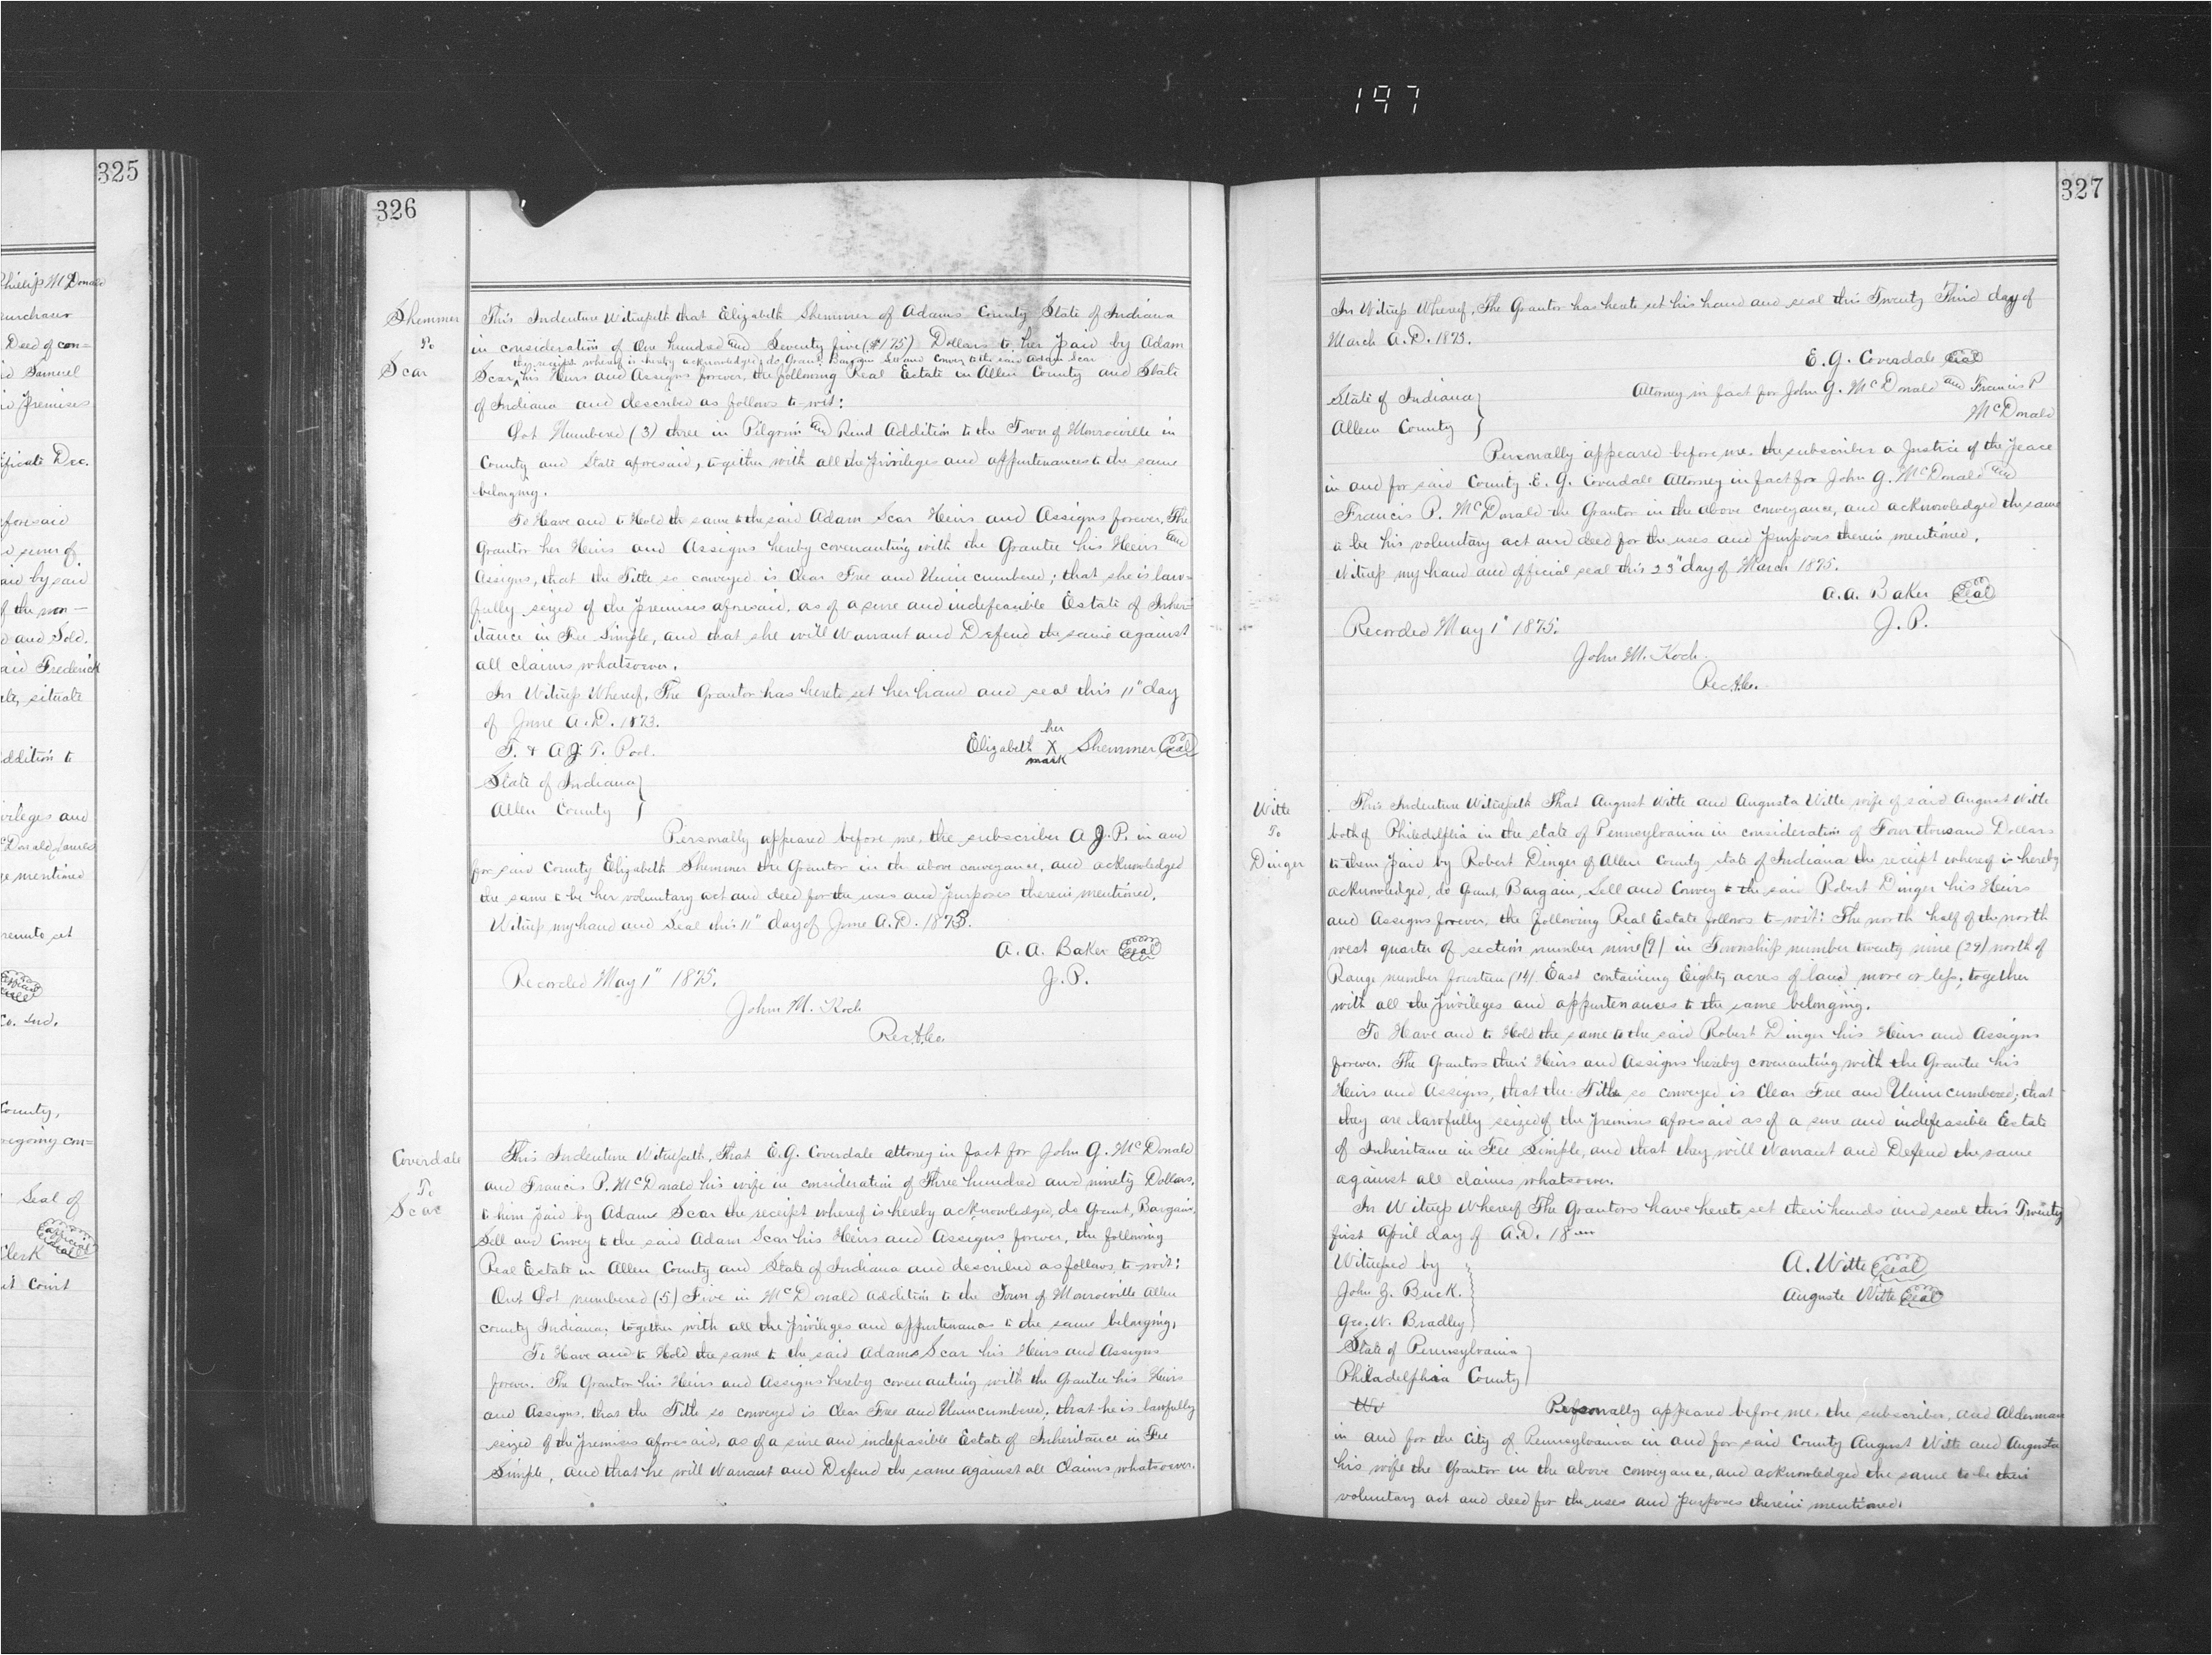 197
325
Phillip McDonald
purchaser
Deed of con=
id Samuel
id premises
ificate Dec.
aforesaid
d sum of
aid by said
of the non-
d and Sold.
aid Frederick
ate, situate
addition to
vileges and
McDonald James
ge mentioned
reunto set
Co. Ind.
County,
regoing con=
Seal of
Clerk
it Court
326
Shemmer
To
Scar
This Indenture Witnesseth that Elizabeth Shemmer of Adams County State of Indiana
in consideration of One hundred and Seventy five ($175) Dollars to her paid by Adam
the receipt whereof is hereby acknowledged; do Grant, Bargain Sell and Convey to the said Adam Scar
Scar his Heirs and Assigns forever, the following Real Estate in Allen County and State
of Indiana and described as follows to-wit:
Lot Numbered (3) three in Pilgrim and Rind Addition to the Town of Monroeville in
County and State aforesaid, together with all the privileges and appurtenances to the same
belonging.
To Have and to Hold the same to the said Adam Scar Heirs and Assigns forever, The
Grantor her Heirs and Assigns hereby covenanting with the Grantee his Heirs and
Assigns, that the Title so conveyed is Clear Free and Unincumbered; that she is law=
fully seized of the premises aforesaid, as of a sure and indefeasible Estate of Inher=
itance in Fee Simple, and that she will Warrant and Defend the same against
all claims whatsoever.
In Witness Whereof, The Grantor has hereto set her hand and seal this 11" day
of June A.D. 1873.
T. & A J. T. Pool. Elizabeth her X mark Shemmer Seal
State of Indiana }
Allen County }
Personally appeared before me, the subscriber A J.P. in and
for said County Elizabeth Shemmer the Grantor in the above conveyance, and acknowledged
the same to be her voluntary act and deed for the uses and purposes therein mentioned.
Witness my hand and Seal this 11" day of June A.D. 1873.
A. A. Baker Seal
Recorded May 1" 1875. J.P.
John M. Koch
Rec. A. Co.
Coverdale
To
Scar
This Indenture Witnesseth, That E.G. Coverdale attorney in fact for John G. McDonald
and Francis P. McDonald his wife in consideration of Three hundred and ninety Dollars,
to him paid by Adams Scar the receipt whereof is hereby acknowledged, do Grant, Bargain,
Sell and Convey to the said Adam Scar his Heirs and Assigns forever, the following
Real Estate in Allen County and State of Indiana and described as follows, to-wit:
Out Lot numbered (5) Five in McDonald Addition to the Town of Monroeville Allen
county Indiana; together with all the privileges and appurtenances to the same belonging,
To Have and to Hold the same to the said Adams Scar his Heirs and Assigns
forever. The Grantor his Heirs and Assigns hereby covenanting with the Grantee his Heirs
and Assigns, that the Title so conveyed is Clear Free and Unincumbered; that he is lawfully
seized of the premises aforesaid, as of a sure and indefeasible Estate of Inheritance in Fee
Simple, and that he will Warrant and Defend the same against all Claims whatsoever.
327
In Witness Whereof, The Grantor has hereto set his hand and seal this Twenty Third day of
March A.D. 1873.
E. G. Coverdale Seal
State of Indiana } Attorney in fact for John G. McDonald and Francis P
Allen County } McDonald
Personally appeared before me, the subscriber a Justice of the Peace
in and for said County E. G. Coverdale Attorney in fact for John G. McDonald and
Francis P. McDonald the Grantor in the above conveyance, and acknowledged the same
to be his voluntary act and deed for the uses and purposes therein mentioned.
Witness my hand and official seal this 23" day of March 1875.
A. A. Baker Seal
Recorded May 1" 1875. J. P.
John M. Koch
Rec. A. Co.
Witte
To
Dinger
This Indenture Witnesseth That August Witte and Augusta Witte wife of said August Witte
both of Philadelphia in the state of Pennsylvania in consideration of Four thousand Dollars
to them paid by Robert Dinger of Allen County state of Indiana the receipt whereof is hereby
acknowledged, do Grant, Bargain, Sell and Convey to the said Robert Dinger his Heirs
and Assigns forever, the following Real Estate follows to-wit: The north half of the north
west quarter of section number nine (9) in Township number twenty nine (29) north of
Range number fourteen (14) East containing Eighty acres of land more or less; together
with all the privileges and appurtenances to the same belonging.
To Have and to Hold the same to the said Robert Dinger his Heirs and Assigns
forever. The Grantors their Heirs and Assigns hereby covenanting with the Grantee his
Heirs and Assigns, that the Title so conveyed is Clear Free and Unincumbered; that
they are lawfully seized of the premises aforesaid as of a sure and indefeasible Estate
of Inheritance in Fee Simple, and that they will Warrant and Defend the same
against all claims whatsoever.
In Witness Whereof The Grantors have hereto set their hands and seal this Twenty
first April day of A.D. 18
Witnessed by A. Witte Seal
John Z. Buck. Auguste Witte Seal
Geo. W. Bradley
State of Pennsylvania }
Philadelphia County }
Personally appeared before me, the subscriber, and Alderman
in and for the City of Pennsylvania in and for said County August Witte and Augusta
his wife the Grantor in the above conveyance, and acknowledged the same to be their
voluntary act and deed for the uses and purposes therein mentioned.